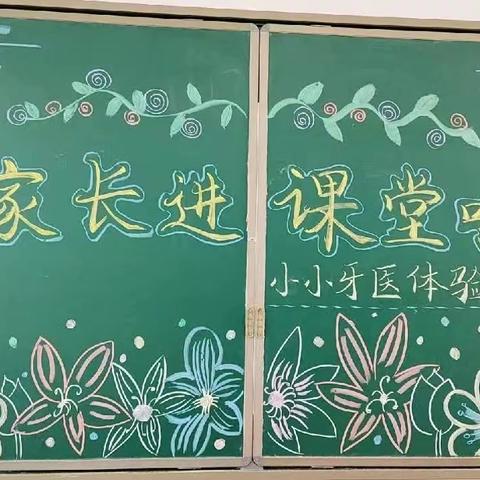 家长进课堂
小小牙医体验